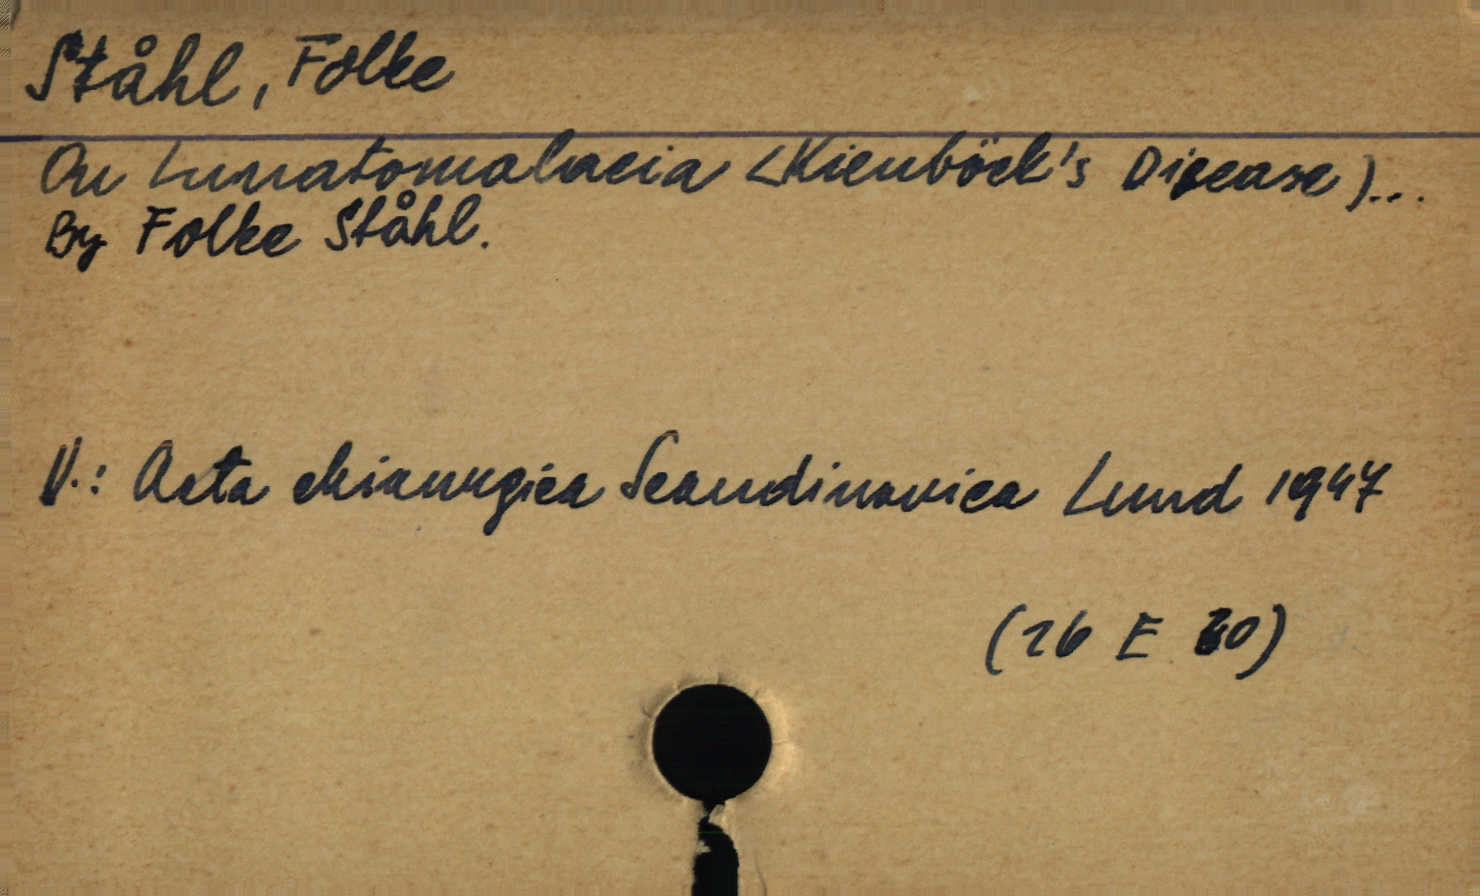 Ståhl, Folke
On Lunatomalacia (Kienböck's Disease)...
By Folke Ståhl.
V.: Acta chirurgica Scandinavica Lund 1947
(26 E 30)